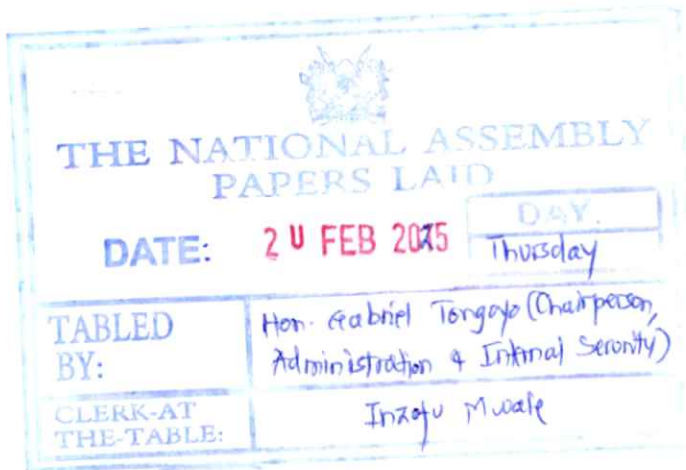 THE NATIONAL ASSEMBLY
PAPERS LAID
DATE: 20 FEB 2025
DAY.
Thursday
TABLED BY:
Hon. Gabriel Tongoyo (Chairperson,
Administration & Internal Security)
CLERK-AT THE-TABLE:
Inzofu Mwale